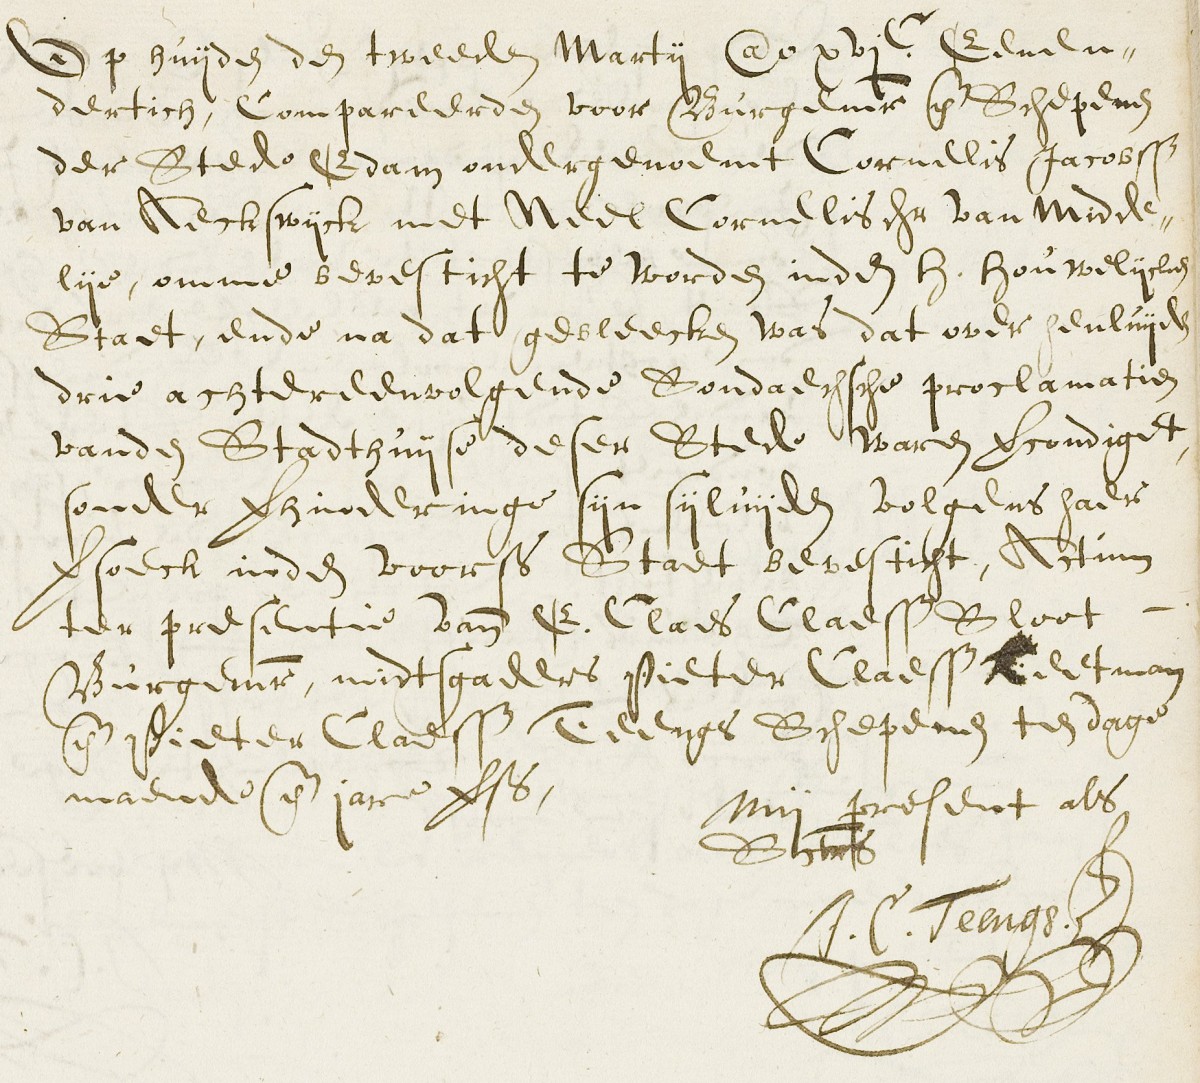 Op huijden den tweeden Martij @o xvjC. Eenen„
dertich, Compareerden voor Burgemr en Schepenen
der Stede Edam ondergenoemt Cornelis Jacobss
van Neckswijck met Neel Cornelis dr van Midde„
lije, omme bevesticht te worden inden h. houwelijcken
Staet, ende na dat gebleecken was dat over henluijden
drie achtereenvolgende Sondaechsche proclamatien
vanden Stadthuijse deser Stede waren vercondiget,
sonder verhinderinge sijn sijluijden volgens haer
versoeck inden voorss Staet bevesticht, Actum
ter presentie van E. Claes Claess Bloot –
Burgemr, midtsgaders Pieter Claess Rietman
en Pieter Claess Teengs Schepenen ten dage
maende en jare verss,
Mij present als
Secrts
J. C. Teengs.